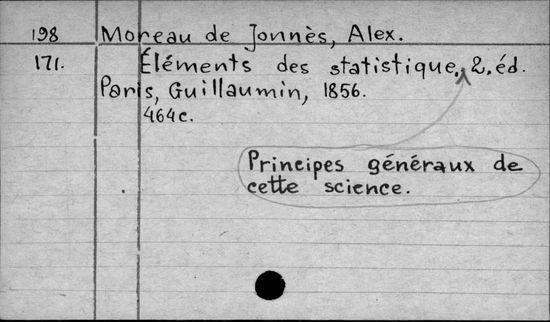 198 Moreau de Jonnès, Alex.
171. Éléments des statistique. 2. éd.
Paris, Guillaumin, 1856.
464c.
Principes généraux de
cette science.